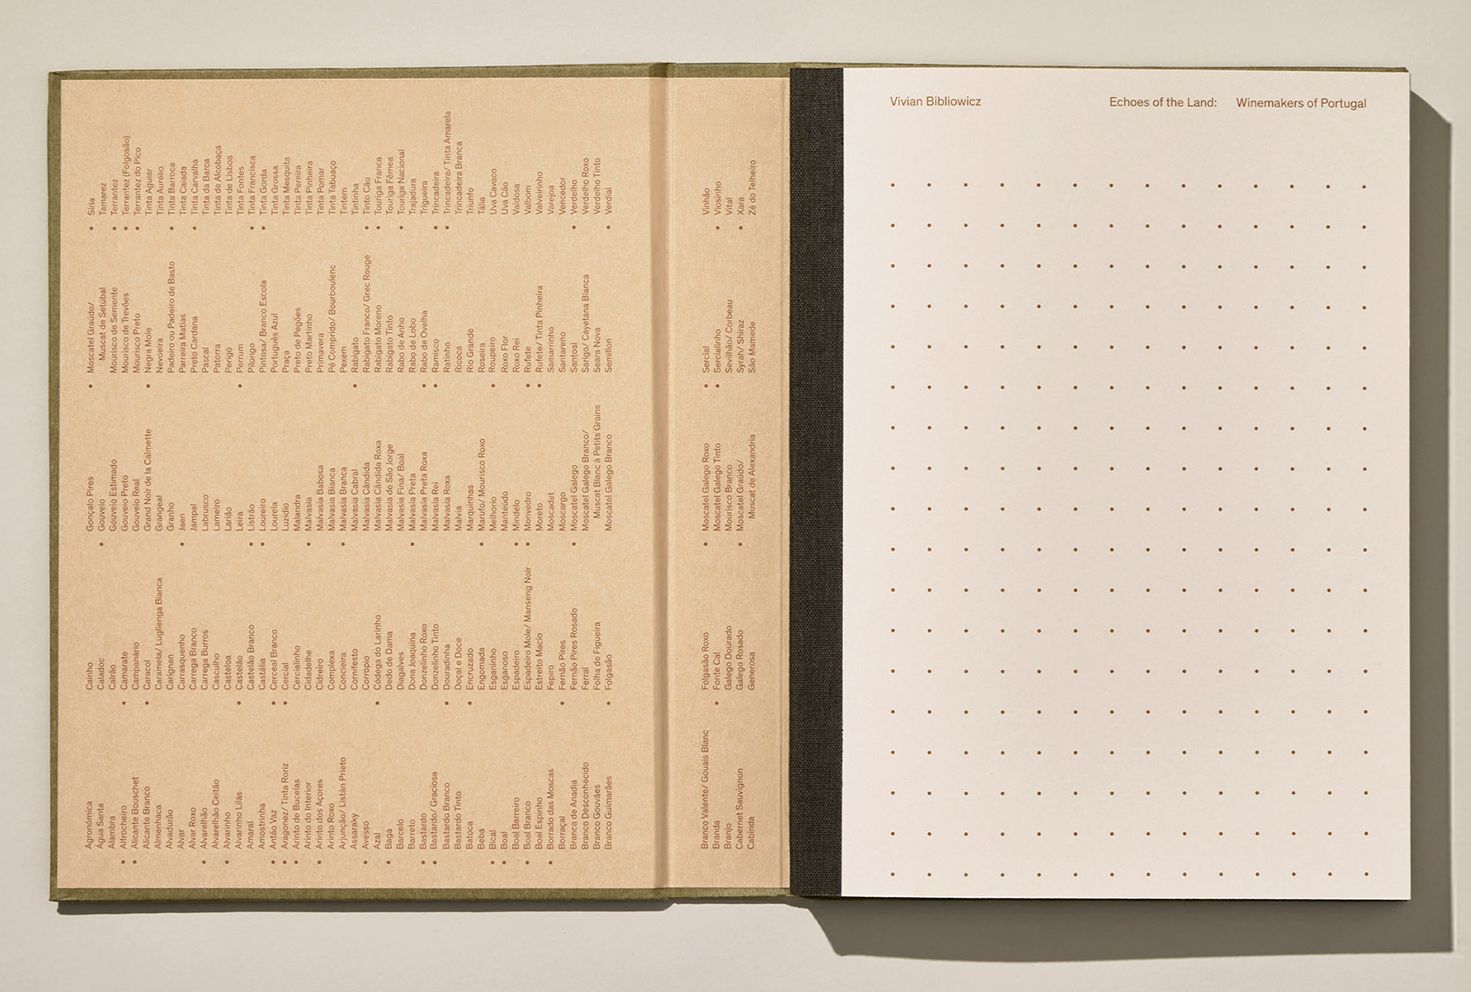 Agronómica
Água Santa
Alambra
Alfrocheiro
Alicante Bouschet
Alicante Branco
Almenhaca
Alvadurão
Alvar
Alvar Roxo
Alvarelhão
Alvarelhão Ceitão
Alvarinho
Alvarinho Lilás
Amaral
Amostrinha
Antão Vaz
Aragonez/ Tinta Roriz
Arinto de Bucelas
Arinto do Interior
Arinto dos Açores
Arinto Roxo
Arjunção/ Listán Prieto
Assaraky
Avesso
Azal
Baga
Barcelo
Barreto
Bastardo
Bastardo/ Graciosa
Bastardo Branco
Bastardo Tinto
Batoca
Beba
Bical
Boal
Boal Barreiro
Boal Branco
Boal Espinho
Borrado das Moscas
Borraçal
Branca de Anadia
Branco Desconhecido
Branco Gouvães
Branco Guimarães
Branco Valente/ Gouais Blanc
Branda
Branjo
Cabernet Sauvignon
Cabinda
Cainho
Caladoc
Calrão
Camarate
Campanário
Caracol
Caramela/ Luglienga Bianca
Carignan
Carrasquenho
Carrega Branco
Carrega Burros
Casculho
Casteloa
Castelão
Castelão Branco
Castália
Cerceal Branco
Cercial
Cercialinho
Cidadelhe
Cidreiro
Complexa
Concieira
Cornifesto
Corropio
Códega do Larinho
Dedo de Dama
Diagalves
Dona Joaquina
Donzelinho Roxo
Donzelinho Tinto
Douradinha
Doçal e Doce
Encruzado
Engomada
Esganinho
Esganoso
Espadeiro
Espadeiro Mole/ Manseng Noir
Estreito Macio
Fepiro
Fernão Pires
Fernão Pires Rosado
Ferral
Folha de Figueira
Folgasão
Folgasão Roxo
Fonte Cal
Galego Dourado
Galego Rosado
Generosa
Gonçalo Pires
Gouveio
Gouveio Estimado
Gouveio Preto
Gouveio Real
Grand Noir de la Calmette
Grangeal
Granho
Jaen
Jampal
Labrusco
Lameiro
Larião
Leira
Listrão
Loureiro
Lourela
Luzidio
Malandra
Malvasia
Malvasia Babosa
Malvasia Bianca
Malvasia Branca
Malvasia Cabral
Malvasia Cândida
Malvasia Cândida Roxa
Malvasia de São Jorge
Malvasia Fina/ Boal
Malvasia Preta
Malvasia Preta Roxa
Malvasia Rei
Malvasia Roxa
Malvia
Marquinhas
Marufo/ Mourisco Roxo
Melhorio
Manteúdo
Mindelo
Monvedro
Moreto
Moscadet
Moscargo
Moscatel Galego
Moscatel Galego Branco/
Muscat Blanc à Petits Grains
Moscatel Galego Branco
Moscatel Galego Roxo
Moscatel Galego Tinto
Mourisco Branco
Moscatel Graúdo/
Muscat de Alexandria
Moscatel Graúdo/
Muscat de Setúbal
Mourisco de Semente
Mourisco de Trevões
Mourisco Preto
Negra Mole
Nevoeira
Padeiro ou Padeiro de Basto
Parreira Matias
Preto Cardana
Pascal
Patorra
Perigo
Perrum
Pilongo
Pintosa/ Branco Escola
Português Azul
Praça
Preto de Pegões
Preto Martinho
Primavera
Pé Comprido/ Bourboulenc
Pexem
Rabigato
Rabigato Franco/ Grec Rouge
Rabigato Moreno
Rabigato Tinto
Rabo de Anho
Rabo de Lobo
Rabo de Ovelha
Ramisco
Ratinho
Ricoca
Rio Grande
Roseira
Roupeiro
Roxo Flor
Roxo Rei
Rufete
Rufete/ Tinta Pinheira
Samarrinho
Santareno
Santoal
Sarigo/ Cayetana Blanca
Seara Nova
Semillon
Sercial
Sercialinho
Sevilhão/ Corbeau
Syrah/ Shiraz
São Mamede
Síria
Tamarez
Terrantez
Terrantez (Folgosão)
Terrantez do Pico
Tinta Aguiar
Tinta Aurélio
Tinta Barroca
Tinta Caiada
Tinta Carvalha
Tinta da Barca
Tinta de Alcobaça
Tinta de Lisboa
Tinta Fontes
Tinta Francisca
Tinta Gorda
Tinta Grossa
Tinta Mesquita
Tinta Pereira
Tinta Pinheira
Tinta Pomar
Tinta Tabuaço
Tintem
Tintinha
Tinto Cão
Touriga Franca
Touriga Fêmea
Touriga Nacional
Trajadura
Trigueira
Trincadeira
Trincadeira/ Tinta Amarela
Trincadeira Branca
Triunfo
Tália
Uva Cavaco
Uva Cão
Valdosa
Valbom
Valveirinho
Varejoa
Vencedor
Verdelho
Verdelho Roxo
Verdelho Tinto
Verdial
Vinhão
Viosinho
Vital
Xara
Zé do Telheiro
Vivian Bibliowicz
Echoes of the Land: Winemakers of Portugal